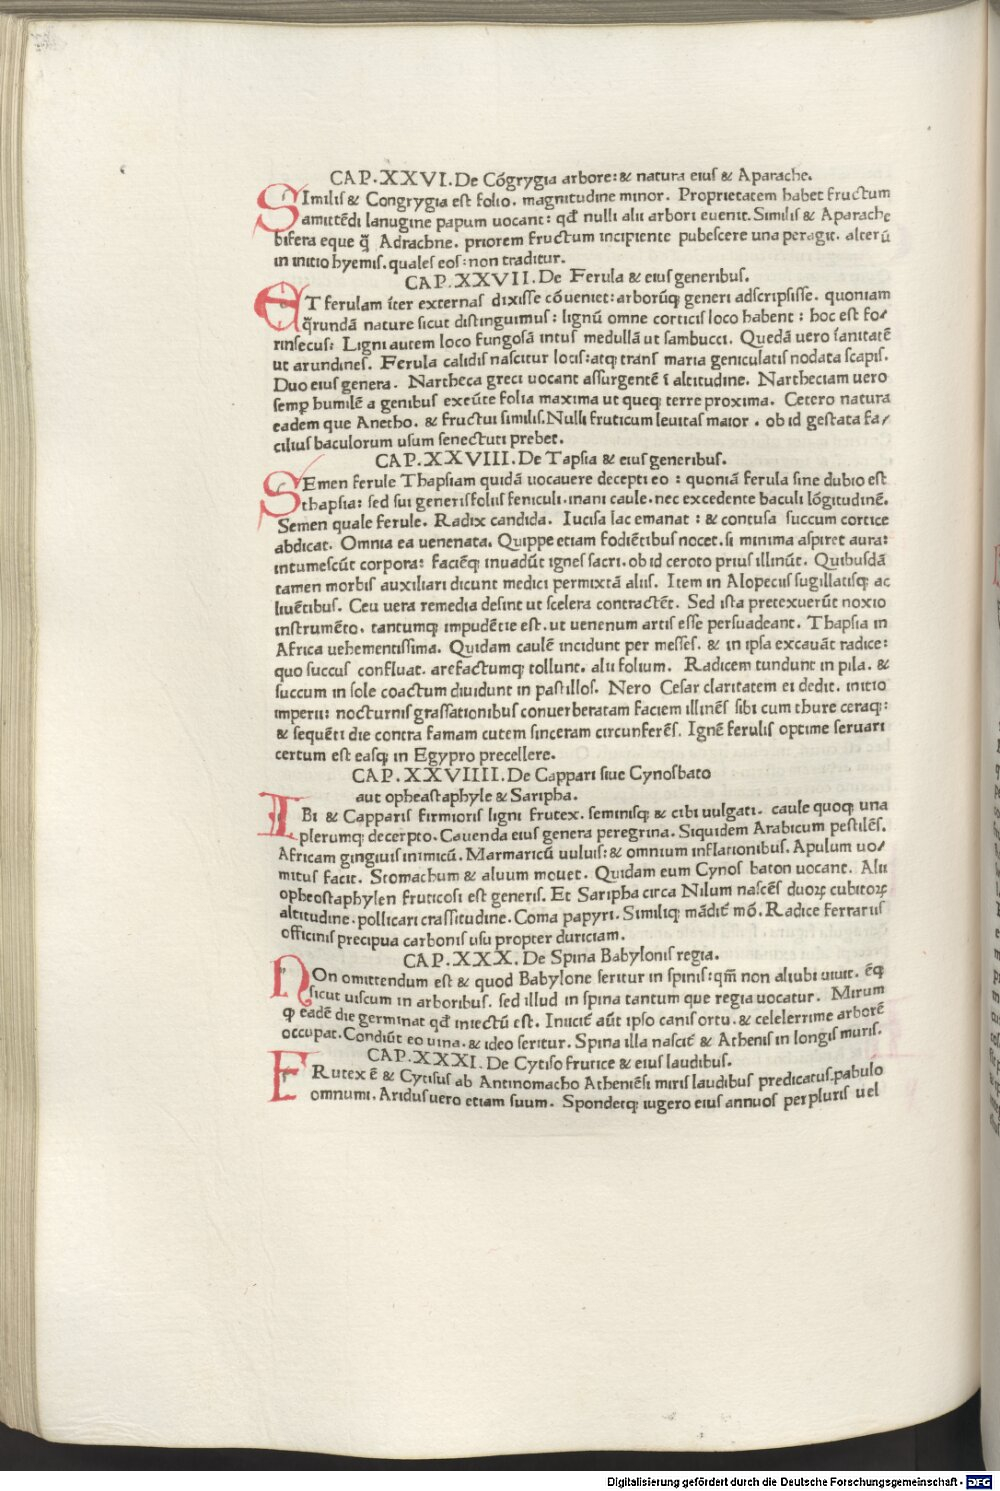 CAP.XXVI.De Cógrygia arbore: & natura eius & Aparache.
SImilis & Congrygia est folio. magnitudine minor. Proprietatem habet fructum
amittẽdi lanugine papum uocant: qd̃ nulli alii arbori euenit. Similis & Aparache
bifera eque q̃ Adrachne. priorem fructum incipiente pubescere una peragit. alterũ
in initio hyemis. quales eos: non traditur.
CAP.XXVII.De Ferula & eius generibus.
ET ferulam ĩter externas dixisse cõueniet: arborũq; generi adscripsisse. quoniam
q̃rundã nature sicut distinguimus: lignũ omne corticis loco habent: hoc est fo/
rinsecus: Ligni autem loco fungosã intus medullã ut sambucci. Quedã uero ĩanitatẽ
ut arundines. Ferula calidis nascitur locis: atq; trans maria geniculatis nodata scapis.
Duo eius genera. Nartheca greci uocant assurgentẽ ĩ altitudine. Artheciam uero
semp̱ humilẽ a genibus exeũte folia maxima ut queq; terre proxima. Cetero natura
eadem que Anetho. & fructui similis. Nulli fruticum leuitas maior. ob id gestata fa/
cilius baculorum usum senectuti prebet.
CAP.XXVIII.De Tapsia & eius generibus.
SEmen ferule Thapsiam quidã uocauere decepti eo: quoniã ferula sine dubio est
thapsia: sed sui generis folus feniculi. inani caule. nec excedente baculi lõgitudinẽ.
Semen quale ferule. Radix candida. Iucisa lac emanat: & contusa succum cortice
abdicat. Omnia ea uenenata. Quippe etiam fodiẽtibus nocet. si minima aspiret aura:
intumescũt corpora: faciẽq; inuadũt ignes sacri. ob id ceroto prius illinũt. Quibusdã
tamen morbis auxiliari dicunt medici permixtã aliis. Item in Alopeciis sugillatisq; ac
liuẽtibus. Ceu uera remedia desint ut scelera contractẽt. Sed ista pretexuerũt noxio
instrumẽto. tantumq; impudẽtie est. ut uenenum artis esse persuadeant. Thapsia in
Africa uehementissima. Quidam caulẽ incidunt per messes. & in ipsa excauãt radice:
quo succus confluat. arefactumq; tollunt. alii folium. Radicem tundunt in pila. &
succum in sole coactum diuidunt in pastillos. Nero Cesar claritatem ei dedit. initio
imperii: nocturnis grassationibus conuerberatam faciem illinẽs sibi cum thure ceraq;:
& sequẽti die contra famam cutem sinceram circunferẽs. Ignẽ ferulis optime seruari
certum est easq; in Egypro precellere.
CAP.XXVIIII.De Cappari siue Cynosbato
aut opheastaphyle & Saripha.
IBi & Capparis firmioris ligni frutex. seminisq; & cibi uulgati. caule quoq; una
plerumq; decerpto. Cauenda eius genera peregrina. Siquidem Arabicum pestilẽs.
Africam gingiuis inimicũ. Marmaricũ uuluis: & omnium inflationibus. Apulum uo/
mitus facit. Stomachum & aluum mouet. Quidam eum Cynos baton uocant. Alii
opheostaphylen fruticosi est generis. Et Saripha circa Nilum nascẽs duoꝝ cubitoꝝ
altitudine. pollicari crassitudine. Coma papyri. Similiq; mãdit̃ mõ. Radice ferrariis
officinis precipua carbonis usu propter duriciam.
CAP.XXX.De Spina Babylonis regia.
NOn omittendum est & quod Babylone seritur in spinis: qm̃ non aliubi uiuit. ẽq;
sicut uiscum in arboribus. sed illud in spina tantum que regia uocatur. Mirum
ꝙ eadẽ die germinat qd̃ iniectũ est. Iniicit̃ aũt ipso canis ortu. & celelerrime arborẽ
occupat. Condiũt eo uina. & ideo seritur. Spina illa nascit̃ & Athenis in longis muris.
CAP.XXXI.De Cytiso frutice & eius laudibus.
FRutex ẽ & Cytisus ab Antinomacho Atheniẽsi miris laudibus predicatus. pabulo
omnumi. Aridus uero etiam suum. Spondetq; iugero eius annuos perpluris uel
Digitalisierung gefördert durch die Deutsche Forschungsgemeinschaft - DFG